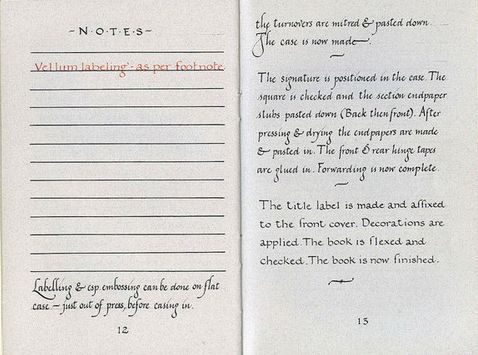 -N·O·T·E·S-
Vellum labeling' - as per footnote.
Labelling & esp. embossing can be done on flat
case – just out of press, before casing in.
12
the turnovers are mitred & pasted down.
The case is now made.
The signature is positioned in the case. The
square is checked and the section endpaper
stubs pasted down (Back then front). After
pressing & drying the endpapers are made
& pasted in. The front & rear hinge tapes
are glued in. Forwarding is now complete.
The title label is made and affixed
to the front cover. Decorations are
applied. The book is flexed and
checked. The book is now finished.
13